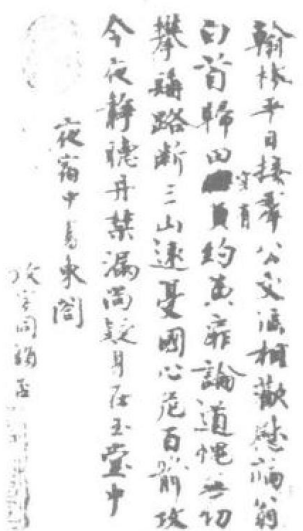 翰林平日接羣公文酒相歡慰病翁
白首歸田空有約黃扉論道愧無功
攀鼇路斷三山遠憂國心危百箭攻
今夜靜聽丹禁漏尚疑身在玉堂中
夜宿中書東閣